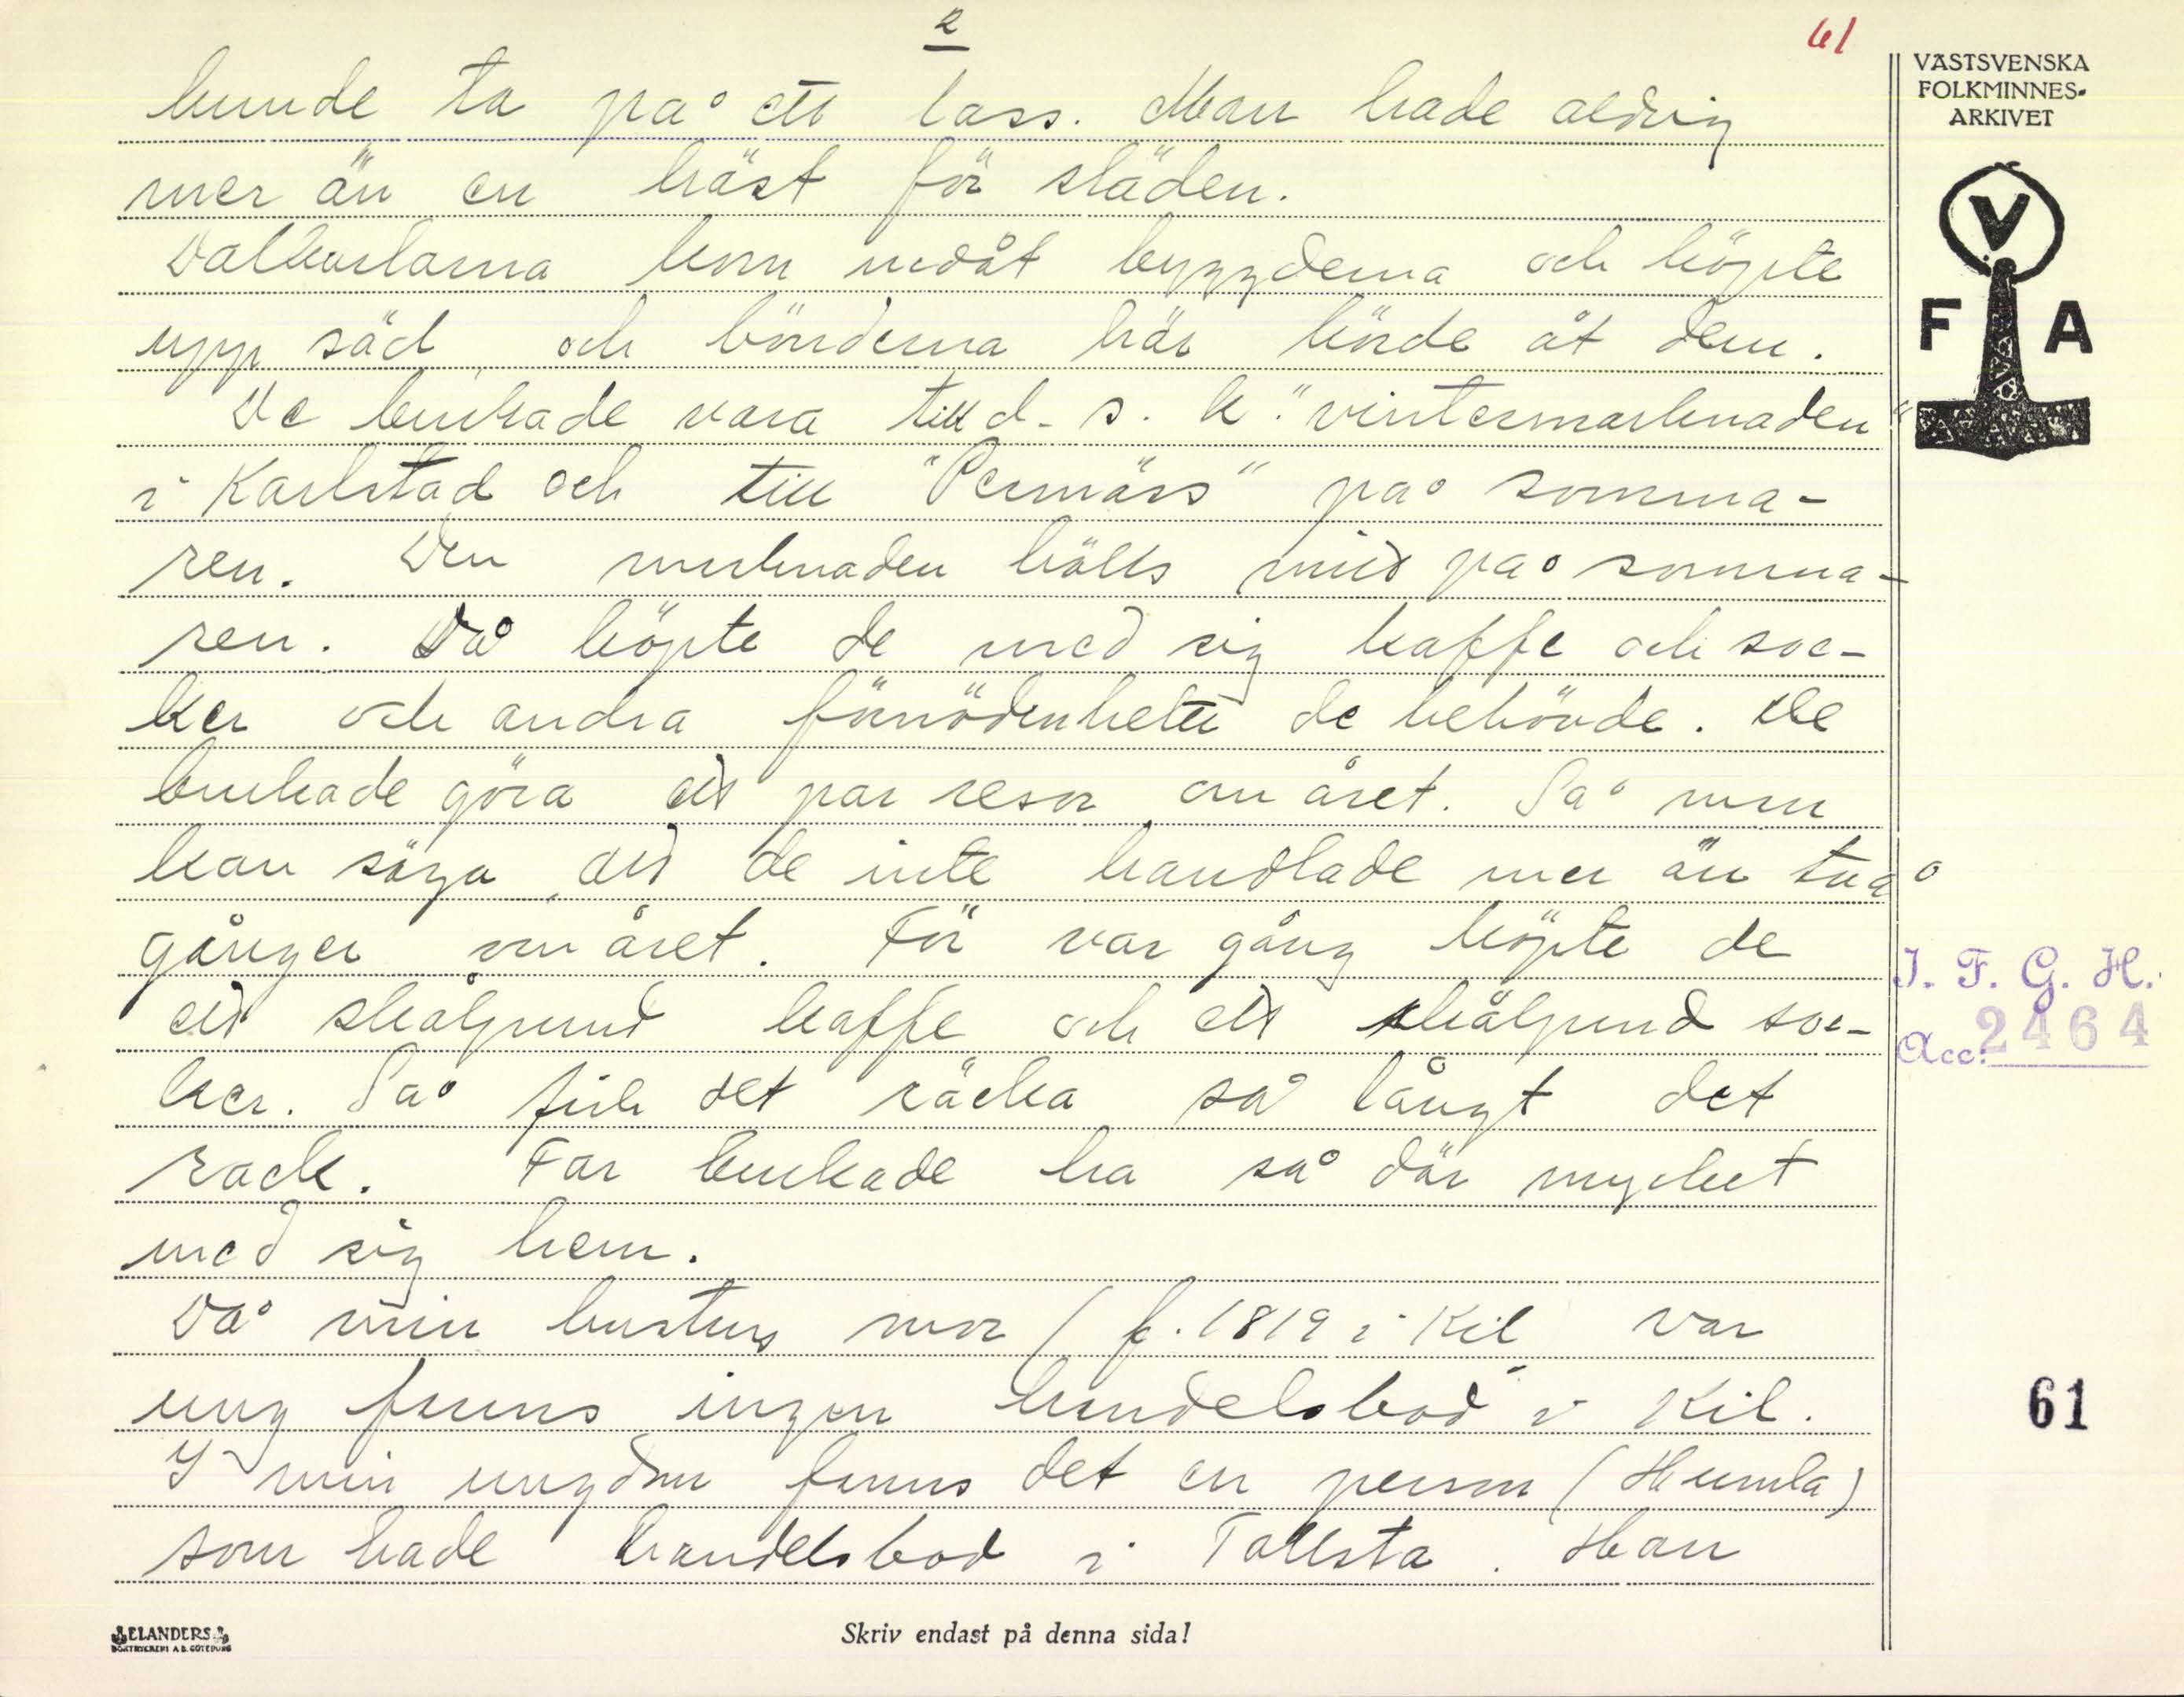 2
61
kunde ta på ett lass. Man hade aldrig
mer än en häst för släden.
Dalkarlarna kom nedåt byggderna och köpte
upp säd och bönderna här körde åt dem.
De brukade vara till d. s. k. "vintermarknaden"
i Karlstad och till "Persmäss" på somma-
ren. Den marknaden hölls mitt på somma-
ren. Då köpte de med sig kaffe och soc-
ker och andra förnödenheter de behövde. De
brukade göra ett par resor om året. Så man
kan säga att de inte handlade mer än två
gånger om året. För var gång köpte de
ett skålpund kaffe och ett skålpund soc-
ker. Så fick det räcka så långt det
rack. Far brukade ha så där mycket
med sig hem.
Då min hustrus mor (f. 1819 i Kil var
ung fanns ingen handelsbod i Kil.
I min ungdom fanns det en person (Humla)
som hade handelsbod i Tallsta. Han
VÄSTSVENSKA
FOLKMINNES-
ARKIVET
V
F A
I. F. G. H.
Acc: 2464
61
ELANDERS
BOKTRYCKERI A.B. GÖTEBORG
Skriv endast på denna sida!